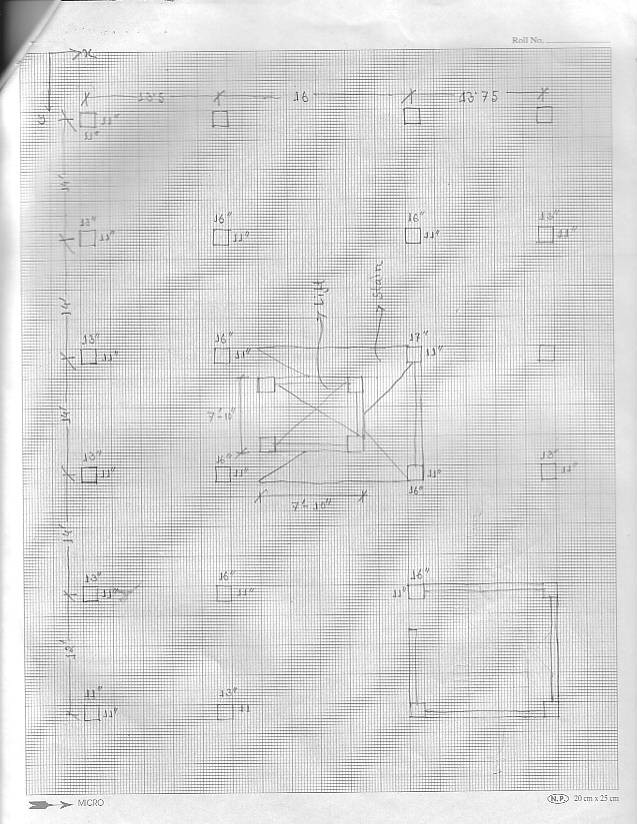 Roll No.
x
13.5 16 13.75
y
11"
11"
14'
13" 16" 16" 13"
11" 11" 11" 11"
Lift
Stair
14'
13" 16" 17"
11" 11" 11"
7'-10"
14'
13" 16" 13"
11" 11" 11" 11"
16"
7'-10"
14'
13" 16" 16"
11" 11" 11"
12'
11" 13"
11" 11
MICRO
N.P. 20 cm x 25 cm